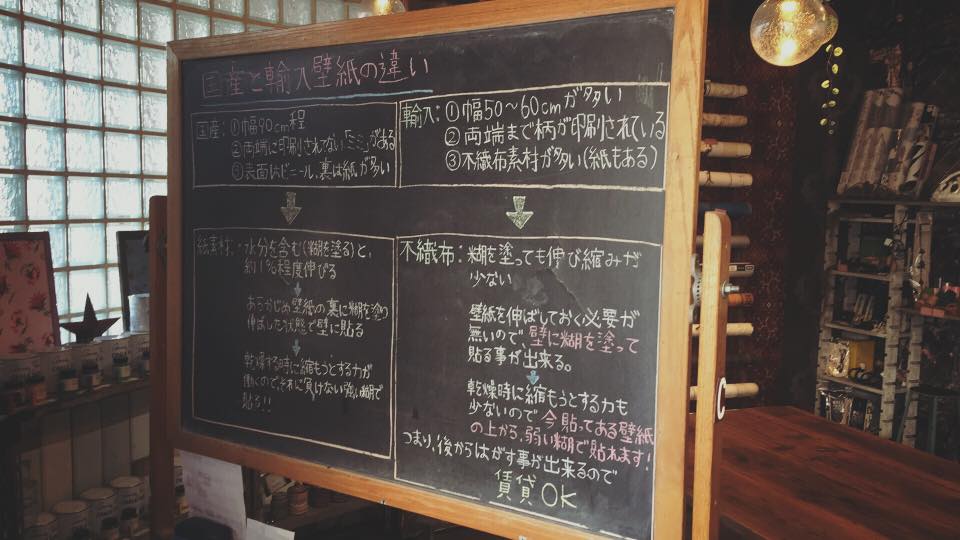 国産と輸入壁紙の違い
国産:①幅90cm程
②両端に印刷されてない「ミミ」がある
③表面はビニール、裏は紙が多い
輸入:①幅50〜60cmが多い
②両端まで柄が印刷されている
③不織布素材が多い(紙もある)
紙素材:水分を含む(糊を塗る)と、
約1%程度伸びる
あらかじめ壁紙の裏に糊を塗り
伸ばした状態で壁に貼る
乾燥する時に縮もうとする力が
働くので、それに負けない強い糊で
貼る!!
不織布:糊を塗っても伸び縮みが
少ない
壁紙を伸ばしておく必要が
無いので、壁に糊を塗って
貼る事が出来る。
乾燥時に縮もうとする力も
少ないので今貼ってある壁紙
の上から、弱い糊で貼れます!
つまり、後からはがす事が出来るので
賃貸OK